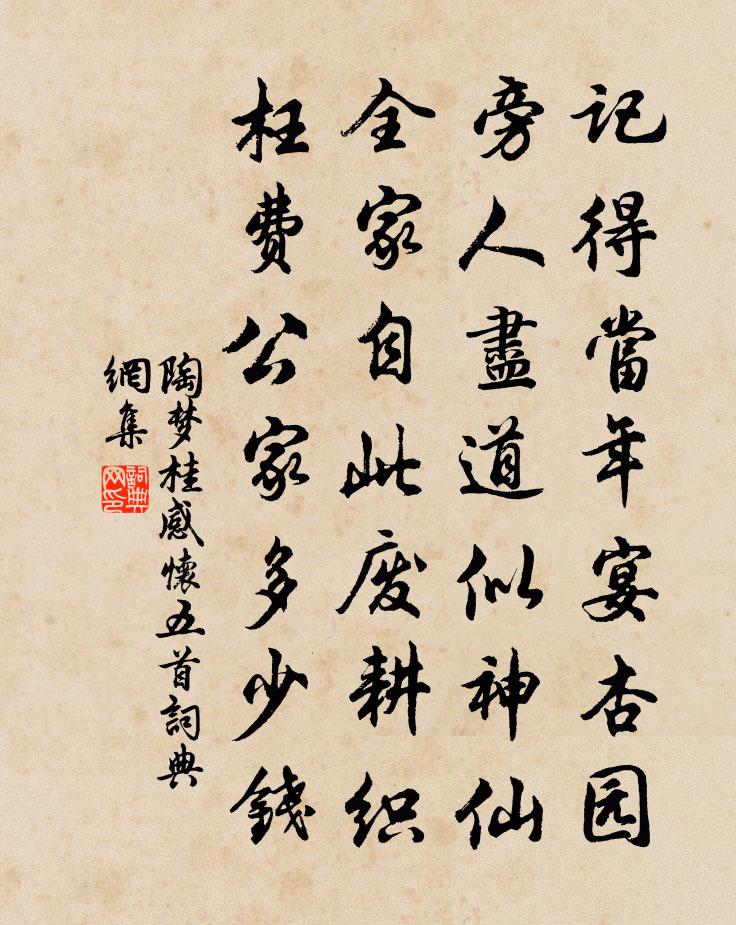 記得當年宴杏园
旁人盡道似神仙
全家自此废耕织
枉费公家多少錢
陶梦桂感懷五首詞典
網集
詞典
网印